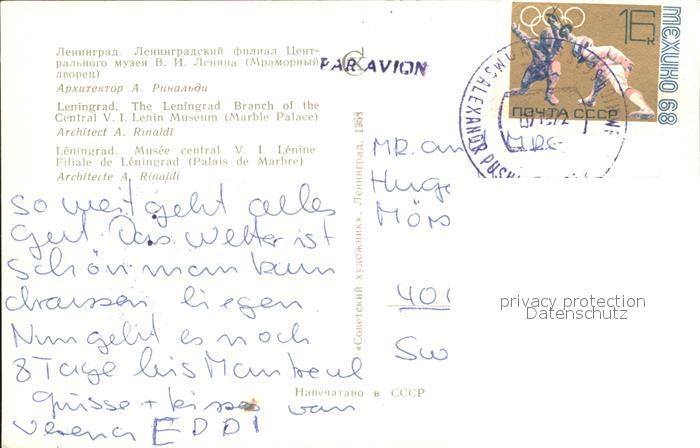 Ленинград. Ленинградский филиал Цент-
рального музея В. И. Ленина (Мраморный
дворец)
Архитектор А. Ринальди
Leningrad. The Leningrad Branch of the
Central V. I. Lenin Museum (Marble Palace)
Architect A. Rinaldi
Léningrad. Musée central V. I. Lénine
Filiale de Léningrad (Palais de Marbre)
Architecte A. Rinaldi
so weit geht alles
gut. Das Wetter ist
schön man kann
draussen liegen.
Nun geht es noch
8 Tage bis Montreal
Grüsse + kisses von
Verena EDDI
«Советский художник». Ленинград, 1968
Напечатано в СССР
PAR AVION
16к
МЕХИКО 68
ПОЧТА СССР
ALEXANDR PUSH
MR. an Mrs.
Huge
Mörs
401
Sw
privacy protection
Datenschutz